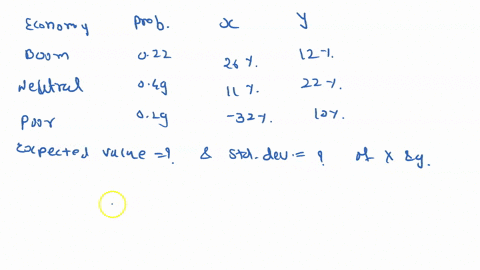 Economy Prob. x y
Boom 0.22 26%. 12%.
Neutral 0.49 11%. 22%.
Poor 0.29 -32%. 10%.
Expected value =? & std.dev.= ? of x & y.